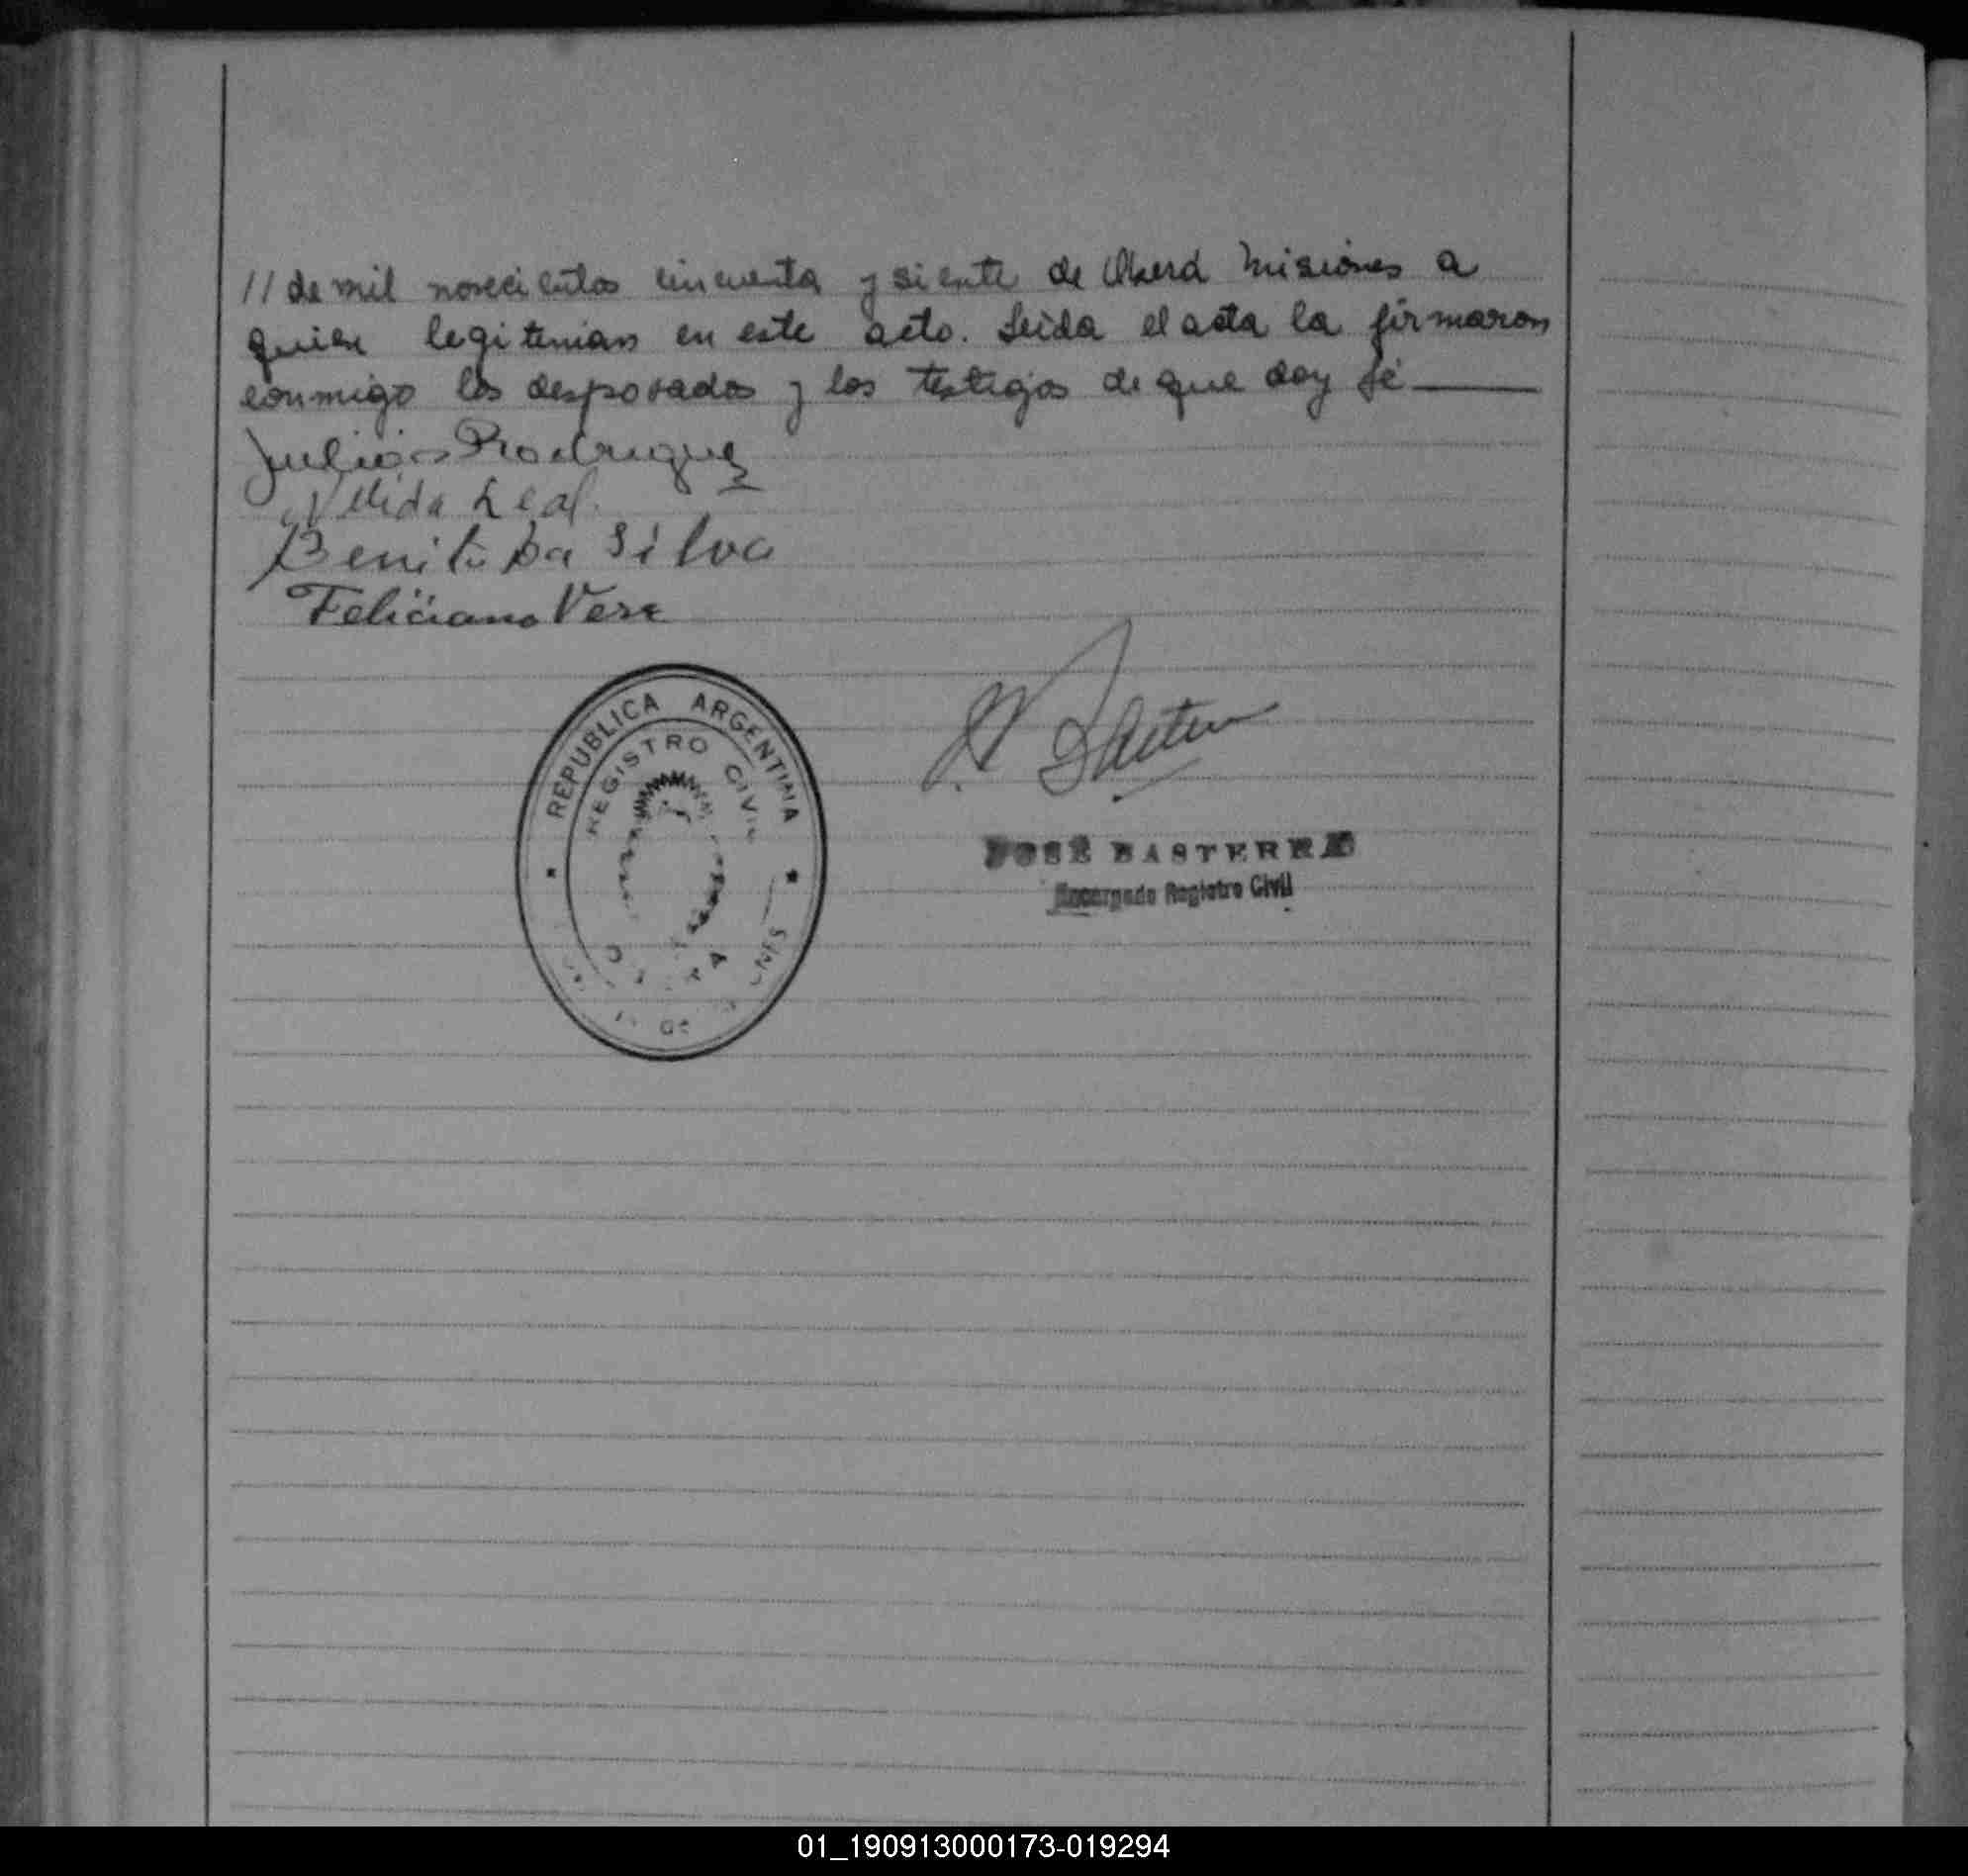 // de mil novecientos cincuenta y siente de Oberá Misiones a
quien legitiman en este acto. Leída el acta la firmaron
conmigo los desposados y los testigos de que doy fé
Rodriguez
Nelida Leal.
Benito Da Silva
Feliciano Vera
REPUBLICA ARGENTINA
REGISTRO CIVIL
JOSÉ BASTERRE
Encargado Registro Civil
01_190913000173-019294